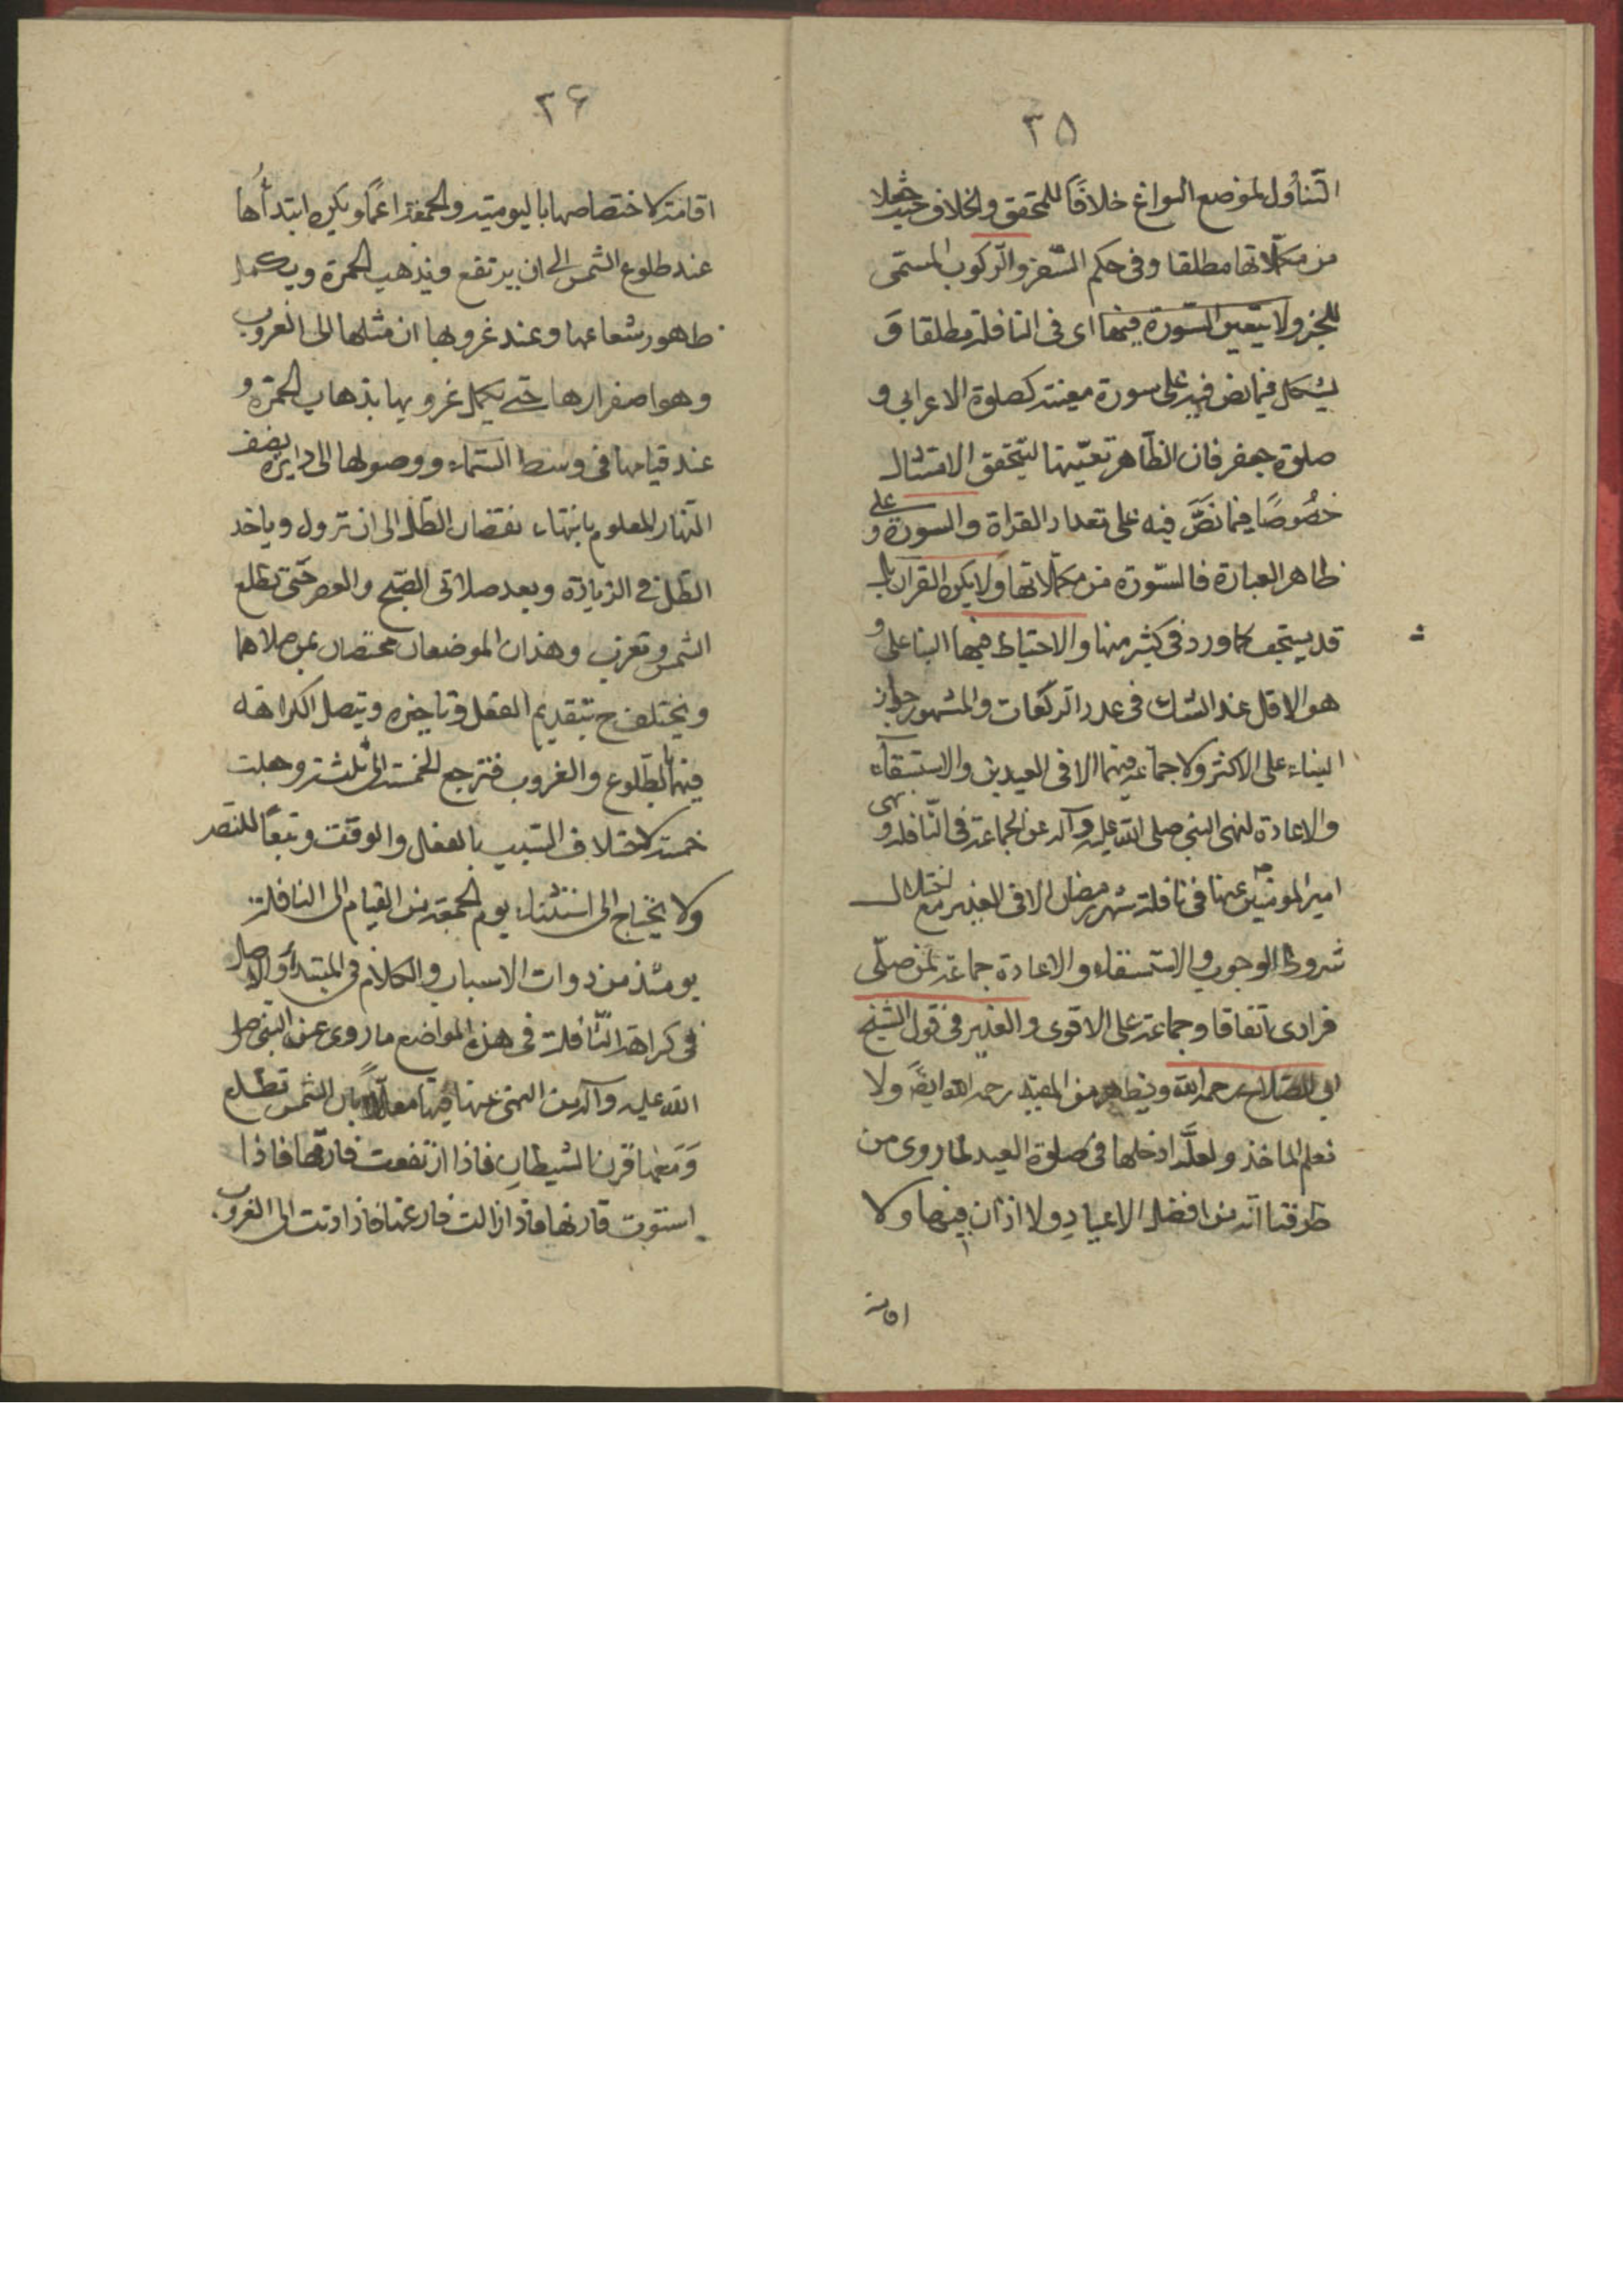 ٣٥
التّناول لموضع السواغ خلافًا للمحقق والخلاف
من مكمّلاتها مطلقا وفى حكم السّفر والركوب المشى
للعجز ولا يتعين السّورة فيها اى فى النافلة مطلقا وَ
يشكل فيما نص فيه على سورة معينة كصلوة الاعرابى و
صلوة جعفر فان الظّاهر تعيّنها لتحقق الامتثال
خصُوصًا فيما نصَّ فيه على تعداد القراة والسورة و على
ظاهر العبارة فالسّورة من مكمّلاتها ولا يكره القران بل
قد يستحب كما ورد فى كثير منها والاحتياط فيها البنا على و
هو الاقل عند الشك فى عدد الركعات والمشهور جواز
البناء على الاكثر ولا جماعة فيها الا فى العيدين والاستسقاء
والاعادة لنهى النبى صلى الله عليه وآله عن الجماعة فى النّافلة و نهى
امير المومنين عنها فى نافلة شهر رمضان الا فى العيدين مع اختلال
شروط الوجوب والاستسقاء والاعادة جماعة لمن صلّى
فرادى اتفاقا وجماعة على الاقوى والغدير فى قول الشيخ
ابى الصّلاح رحمه الله ويظهر من المفيد رحمه الله ايضًا ولا
نعلم الماخذ ولعلّه ادخلها فى صلوة العيد لما روى من
طرقنا انّه من افضل الاعيادِ ولا اذان فيها ولا
اقامة
٣۶
اقامة لاختصاصها باليومية والجمعة اعمًا ويكره ابتداُها
عند طلوع الشمس الى ان يرتفع ويذهب الحمرة ويكمل
ظهور شعاعها وعند غروبها اى مثلها الى الغروب
وهو اصفرارها حتى يكمل غروبها بذهاب الحمرة و
عند قيامها فى وسط السّماء ووصولها الى دايرة نصف
النّهار المعلوم بانتهاء نقصان الظّل الى ان تزول وياخذ
الظّل فى الزيادة وبعد صلاتى الصّبح والعصر حتّى تطلع
الشمس وتغرب وهذان الموضعان مختصان بمن صلاهما
ويختلف ح بتقديم الفعل وتاخيره ويتصل الكراهة
فيهما بالطّلوع والغروب فترجع الخمسة الى ثلثة وجعلت
خمسة لاختلاف السّبب بالفعل والوقت وتبعًا للنصّ
ولا يحتاج الى استثناء يوم الجمعة من القيام الى النافلة
يومئذ من ذوات الاسباب والكلام فى المبتدأة والاصل
فى كراهة النّافلة فى هذه المواضع ما روى عن النبى صلى
الله عليه وآله من النهى عنها فيها معلّلا بان الشمس تطلع
وَمَعها قرن الشيطان فاذا ارتفعت فارقها فاذا
استوت قارنها فاذا زالت فارقها فاذا دنت الى الغروب